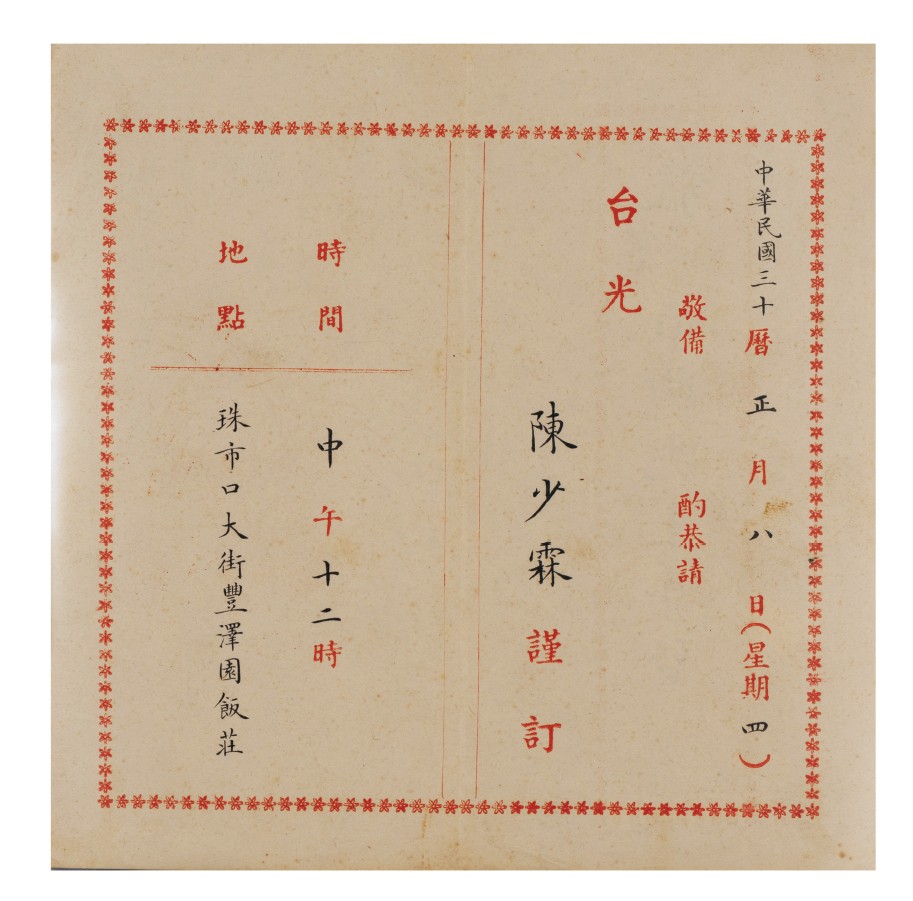 中華民國三十曆正月八日(星期四)
敬備酌恭請
台光
陳少霖謹訂
時間中午十二時
地點珠市口大街豐澤園飯莊